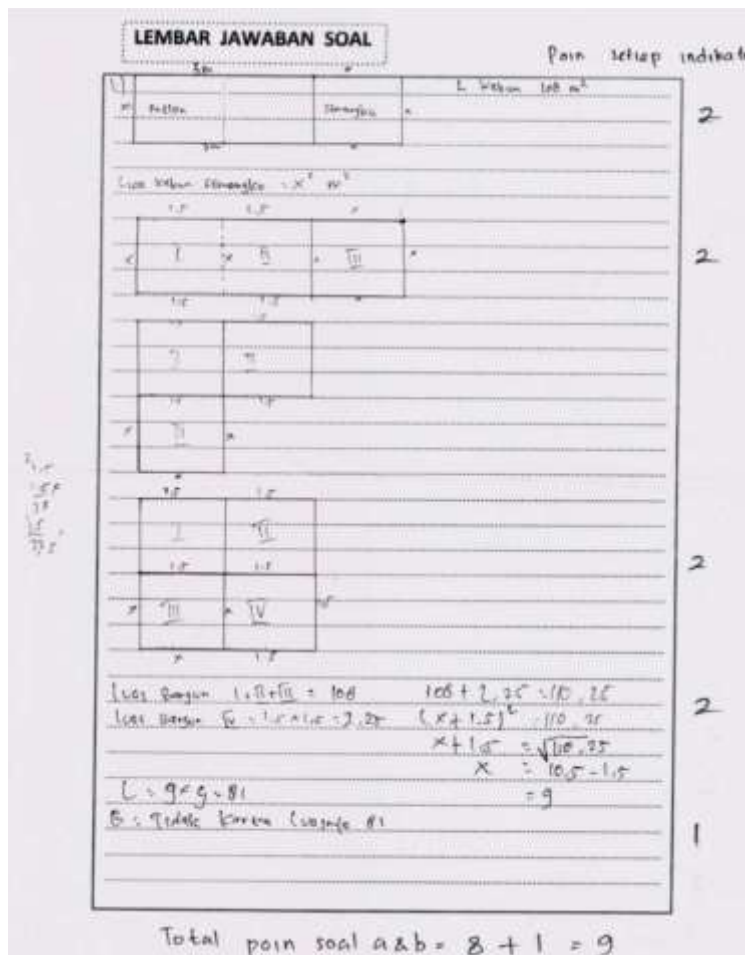 LEMBAR JAWABAN SOAL
Poin setiap indikato
3m x
1) L kebun 108 m²
x melon semangka x 2
3m
Luas kebun semangka = x² m²
1.5 1.5 x
x I x II x III x 2
1.5 1.5 x
I II
x III x
1.5 1.5
I II
1.5 1.5 2
x III x IV 1.5
x 1.5
Luas Bangun I+II+III = 108 108 + 2.25 = 110.25
Luas Bangun IV = 1.5 x 1.5 = 2.25 (x+1.5)² = 110.25 2
x+1.5 = √110.25
x = 10.5 - 1.5
L = 9 x 9 = 81 = 9
B = Tidak karena luasnya 81
1
Total poin soal a&b = 8 + 1 = 9